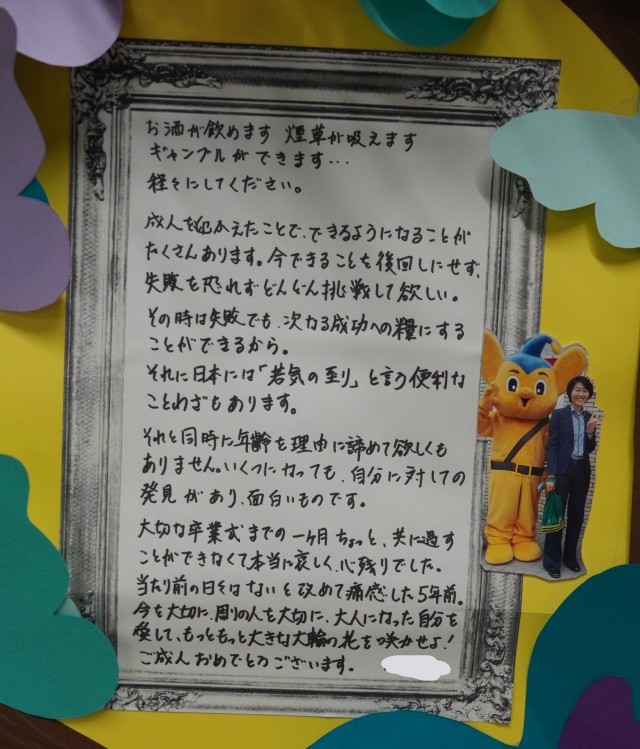 お酒が飲めます 煙草が吸えます
ギャンブルができます…
程々にしてください。
成人をむかえたことで、できるようになることが
たくさんあります。今できることを後回しにせず、
失敗を恐れずどんどん挑戦して欲しい。
その時は失敗でも、次なる成功への糧にする
ことができるから。
それに日本には「若気の至り」と言う便利な
ことわざもあります。
それと同時に年齢を理由に諦めて欲しくも
ありません。いくつになっても、自分に対しての
発見があり、面白いものです。
大切な卒業式までの一ヶ月ちょっと、共に過す
ことができなくて本当に哀しく、心残りでした。
当たり前の日々はないと改めて痛感した5年前。
今を大切に、周りの人を大切に、大人になった自分を
愛して、もっともっと大きな大輪の花を咲かせよ!
ご成人おめでとうございます。